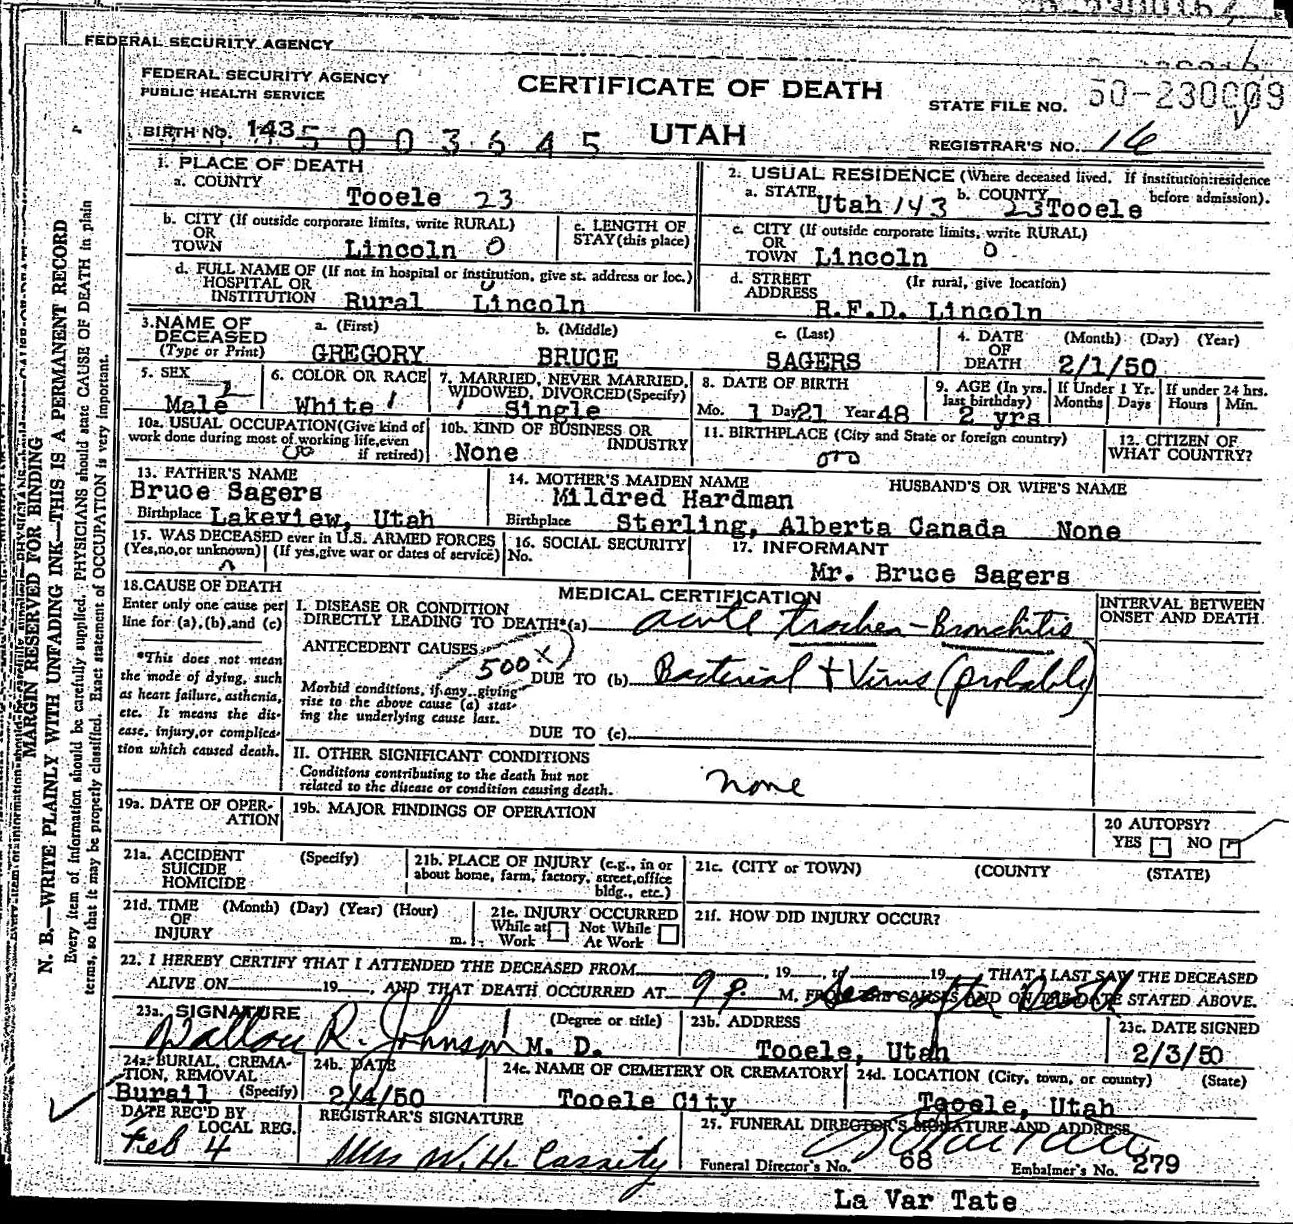 FEDERAL SECURITY AGENCY
FEDERAL SECURITY AGENCY
PUBLIC HEALTH SERVICE
CERTIFICATE OF DEATH
UTAH
STATE FILE NO. 50-230009
BIRTH NO. 143 5003645
REGISTRAR'S NO. 16
1. PLACE OF DEATH
a. COUNTY
Tooele 23
2. USUAL RESIDENCE (Where deceased lived. If institution: residence before admission).
a. STATE Utah 143 b. COUNTY 23 Tooele
b. CITY (If outside corporate limits, write RURAL)
OR
TOWN Lincoln 0
c. LENGTH OF
STAY (this place)
c. CITY (If outside corporate limits, write RURAL)
OR
TOWN Lincoln 0
d. FULL NAME OF (If not in hospital or institution, give st. address or loc.)
HOSPITAL OR
INSTITUTION Rural Lincoln
d. STREET (If rural, give location)
ADDRESS
R.F.D. Lincoln
3. NAME OF
DECEASED
(Type or Print)
a. (First)
GREGORY
b. (Middle)
BRUCE
c. (Last)
SAGERS
4. DATE (Month) (Day) (Year)
OF
DEATH 2/1/50
5. SEX
Male 2
6. COLOR OR RACE
White 1
7. MARRIED, NEVER MARRIED,
WIDOWED, DIVORCED (Specify)
1 Single
8. DATE OF BIRTH
Mo. 1 Day 21 Year 48
9. AGE (In yrs. last birthday)
2 yrs
If Under 1 Yr.
Months Days
If under 24 hrs.
Hours Min.
10a. USUAL OCCUPATION (Give kind of
work done during most of working life, even
if retired)
10b. KIND OF BUSINESS OR
INDUSTRY
None
11. BIRTHPLACE (City and State or foreign country)
12. CITIZEN OF
WHAT COUNTRY?
13. FATHER'S NAME
Bruce Sagers
Birthplace Lakeview, Utah
14. MOTHER'S MAIDEN NAME
Mildred Hardman
Birthplace Sterling, Alberta Canada
HUSBAND'S OR WIFE'S NAME
None
15. WAS DECEASED ever in U.S. ARMED FORCES
(Yes, no, or unknown) (If yes, give war or dates of service)
16. SOCIAL SECURITY
No.
17. INFORMANT
Mr. Bruce Sagers
18. CAUSE OF DEATH
Enter only one cause per
line for (a), (b), and (c)
*This does not mean
the mode of dying, such
as heart failure, asthenia,
etc. It means the dis-
ease, injury, or complica-
tion which caused death.
MEDICAL CERTIFICATION
INTERVAL BETWEEN
ONSET AND DEATH
I. DISEASE OR CONDITION
DIRECTLY LEADING TO DEATH*(a) acute Trachea-Bronchitis
ANTECEDENT CAUSES
500 X
DUE TO (b) Bacterial + Virus (probably)
Morbid conditions, if any, giving
rise to the above cause (a) stat-
ing the underlying cause last.
DUE TO (c)
II. OTHER SIGNIFICANT CONDITIONS
Conditions contributing to the death but not
related to the disease or condition causing death.
none
19a. DATE OF OPER-
ATION
19b. MAJOR FINDINGS OF OPERATION
20 AUTOPSY?
YES NO
21a. ACCIDENT (Specify)
SUICIDE
HOMICIDE
21b. PLACE OF INJURY (e.g., in or
about home, farm, factory, street, office
bldg., etc.)
21c. (CITY or TOWN) (COUNTY (STATE)
21d. TIME (Month) (Day) (Year) (Hour)
OF
INJURY m.
21e. INJURY OCCURRED
While at Work Not While At Work
21f. HOW DID INJURY OCCUR?
22. I HEREBY CERTIFY THAT I ATTENDED THE DECEASED FROM , 19 , to 19 THAT I LAST SAW THE DECEASED
ALIVE ON 19 , AND THAT DEATH OCCURRED AT 9 P. M. FROM THE CAUSES AND ON THE DATE STATED ABOVE.
Seen after Death
23a. SIGNATURE (Degree or title)
R. Johnson M. D.
23b. ADDRESS
Tooele, Utah
23c. DATE SIGNED
2/3/50
24a. BURIAL, CREMA-
TION, REMOVAL
Burail (Specify)
24b. DATE
2/4/50
24c. NAME OF CEMETERY OR CREMATORY
Tooele City
24d. LOCATION (City, town, or county) (State)
Tooele, Utah
DATE REC'D BY
LOCAL REG.
Feb 4
REGISTRAR'S SIGNATURE
Mrs W. H. Cassity
25. FUNERAL DIRECTOR'S SIGNATURE AND ADDRESS
Funeral Director's No. 68 Embalmer's No. 279
La Var Tate
MARGIN RESERVED FOR BINDING
N. B.—WRITE PLAINLY WITH UNFADING INK—THIS IS A PERMANENT RECORD
Every item of information should be carefully supplied. PHYSICIANS should state CAUSE OF DEATH in plain
terms, so that it may be properly classified. Exact statement of OCCUPATION is very important.